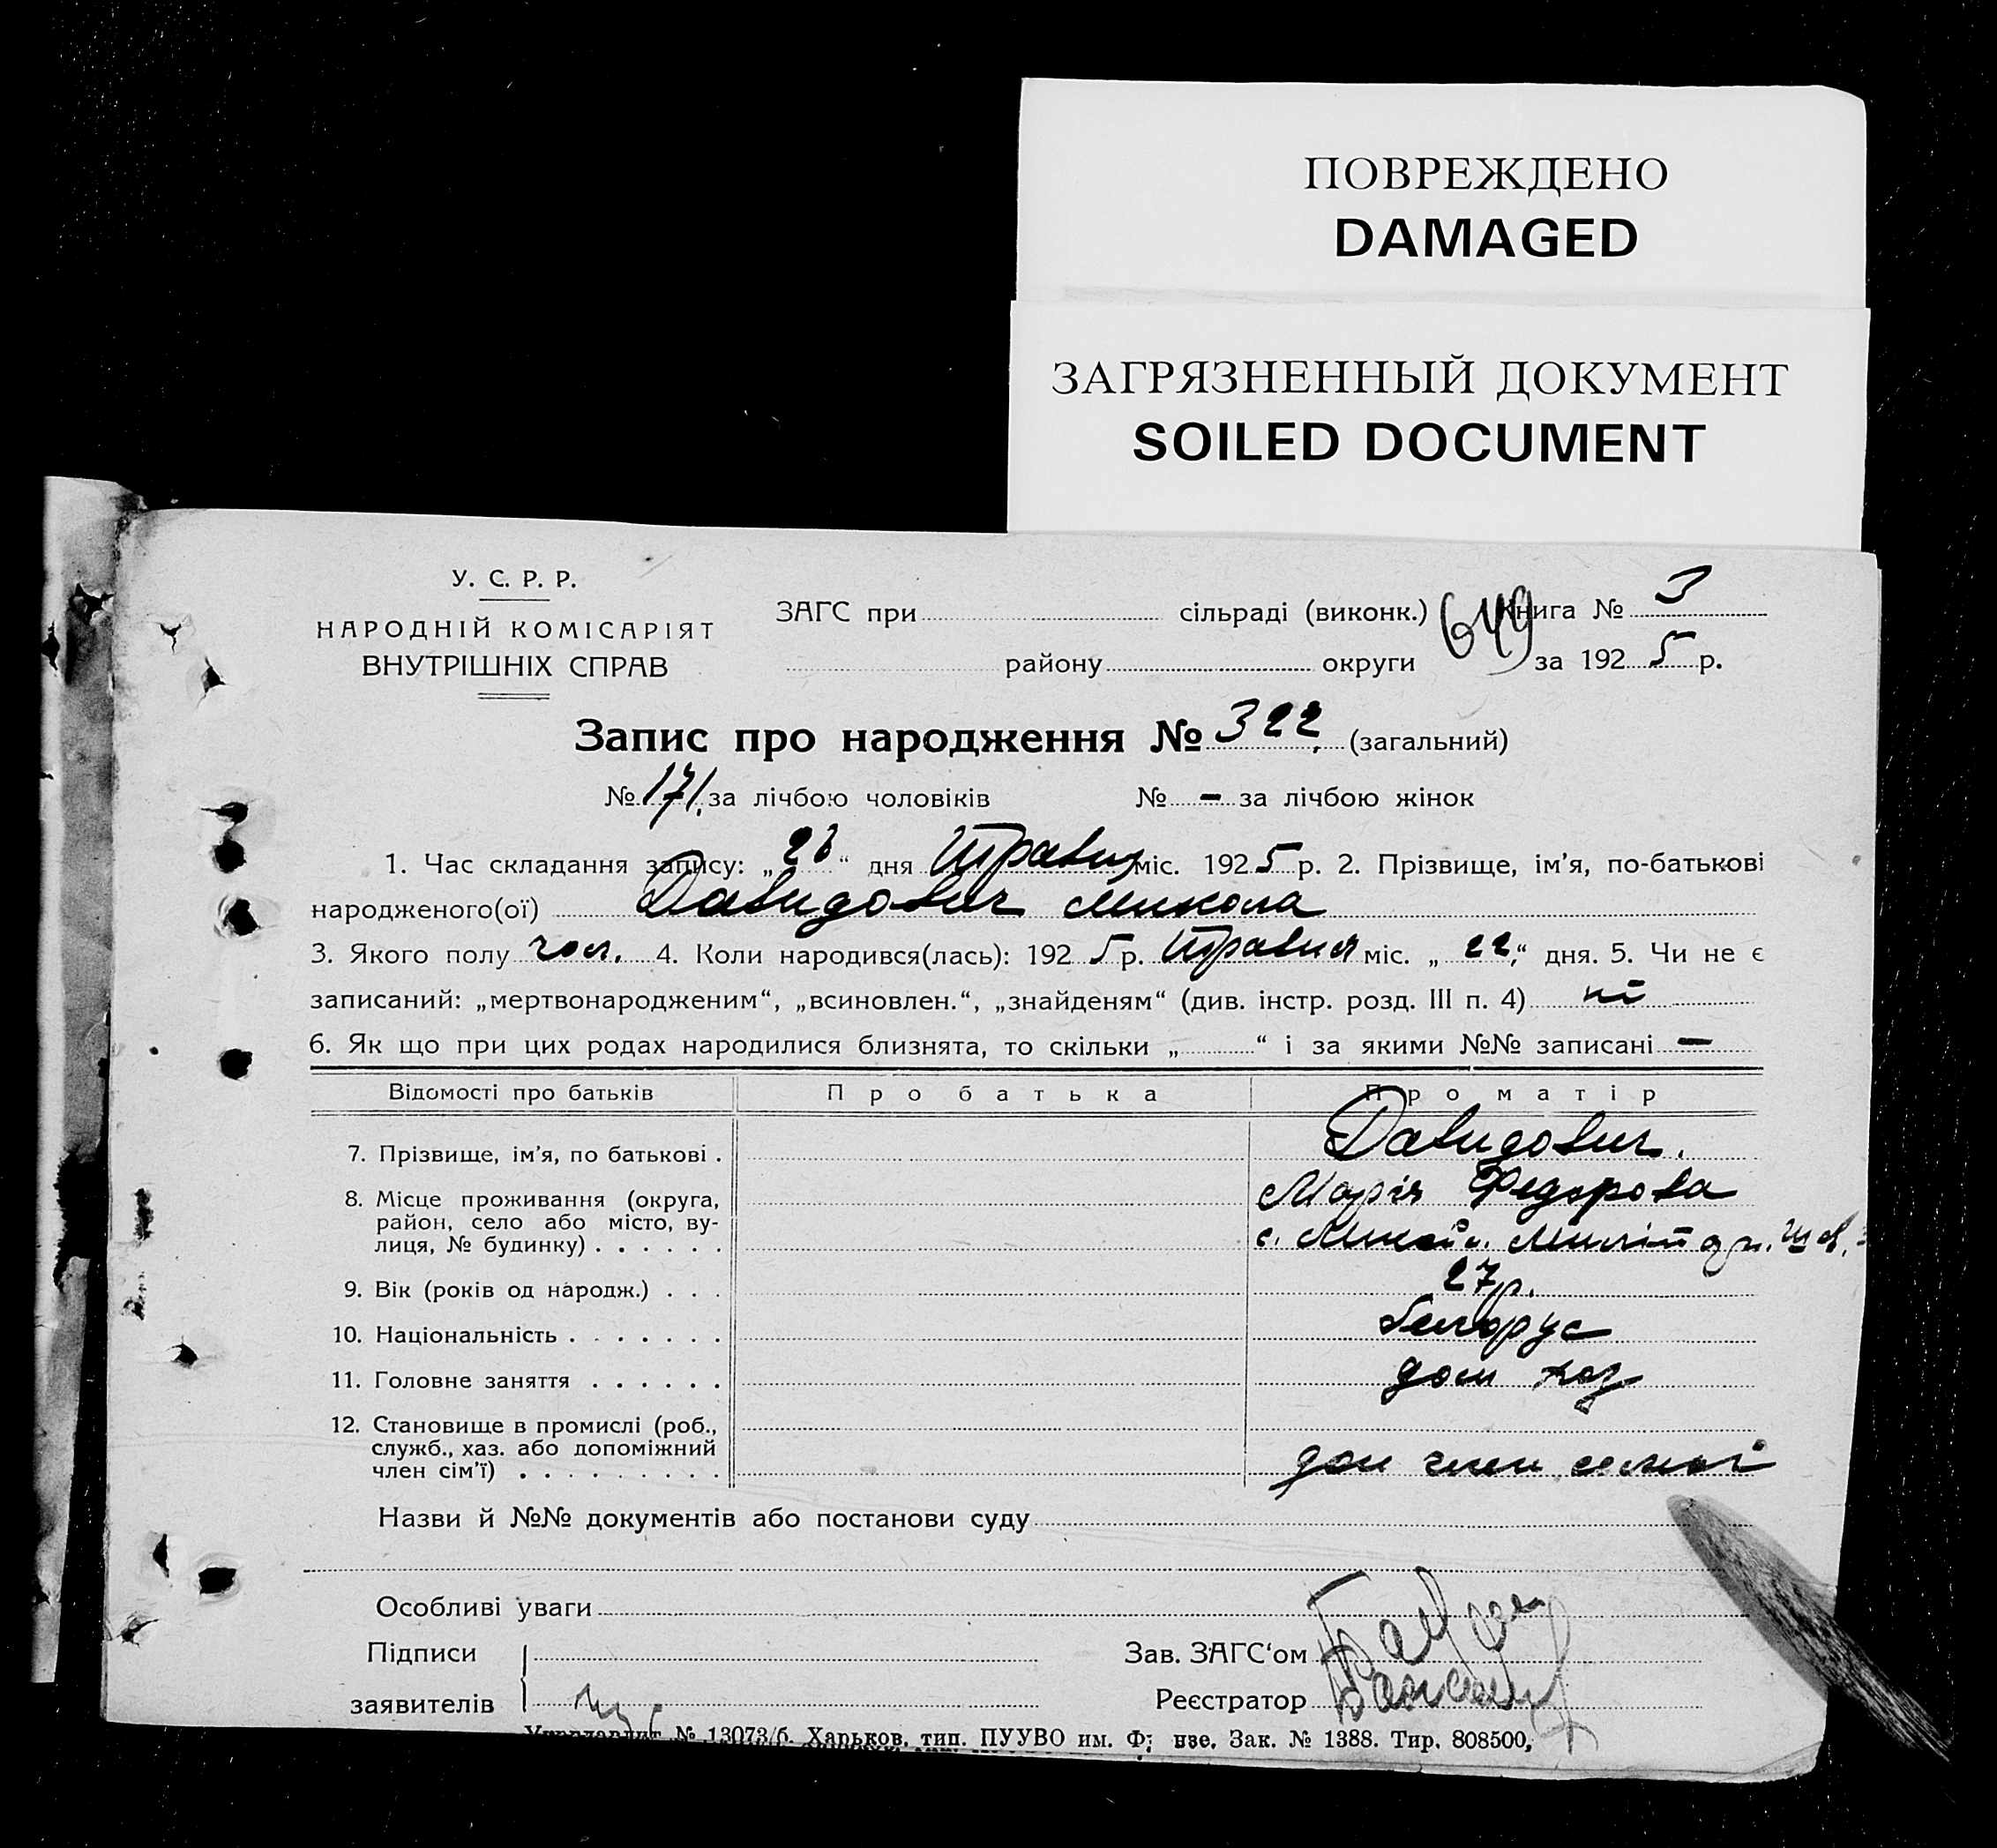 ПОВРЕЖДЕНО
DAMAGED
ЗАГРЯЗНЕННЫЙ ДОКУМЕНТ
SOILED DOCUMENT
У. С. Р. Р.
НАРОДНІЙ КОМІСАРІЯТ
ВНУТРІШНІХ СПРАВ
ЗАГС при сільраді (виконк.) 649 Книга № 3
району округи за 1925 р.
Запис про народження № 322. (загальний)
№ 171. за лічбою чоловіків № – за лічбою жінок
1. Час складання запису: „26“ дня Травня міс. 1925 р. 2. Прізвище, ім'я, по-батькові
народженого(ої) Давидович Микола
3. Якого полу чол. 4. Коли народився(лась): 1925 р. Травня міс. „22“ дня. 5. Чи не є
записаний: „мертвонародженим“, „всиновлен.“, „знайденям“ (див. інстр. розд. III п. 4) ні
6. Як що при цих родах народилися близнята, то скільки „ “ і за якими №№ записані –
Відомості про батьків Про батька Про матір
7. Прізвище, ім'я, по батькові . Давидович.
8. Місце проживання (округа, район, село або місто, вулиця, № будинку) . . . . . . Марія Федорова
с.
9. Вік (років од народж.) . . . 27 р.
10. Національність . . . . . . . білорус
11. Головне заняття . . . . . . дом хоз
12. Становище в промислі (роб., служб., хаз. або допоміжний член сім'ї) . . . . . . . . . доп член семьї
Назви й №№ документів або постанови суду
Особливі уваги
Підписи
заявителів
Зав. ЗАГС'ом
Реєстратор
№ 13073/б. Харьков, тип. ПУУВО им. Ф; нзе. Зак. № 1388. Тир. 808500,